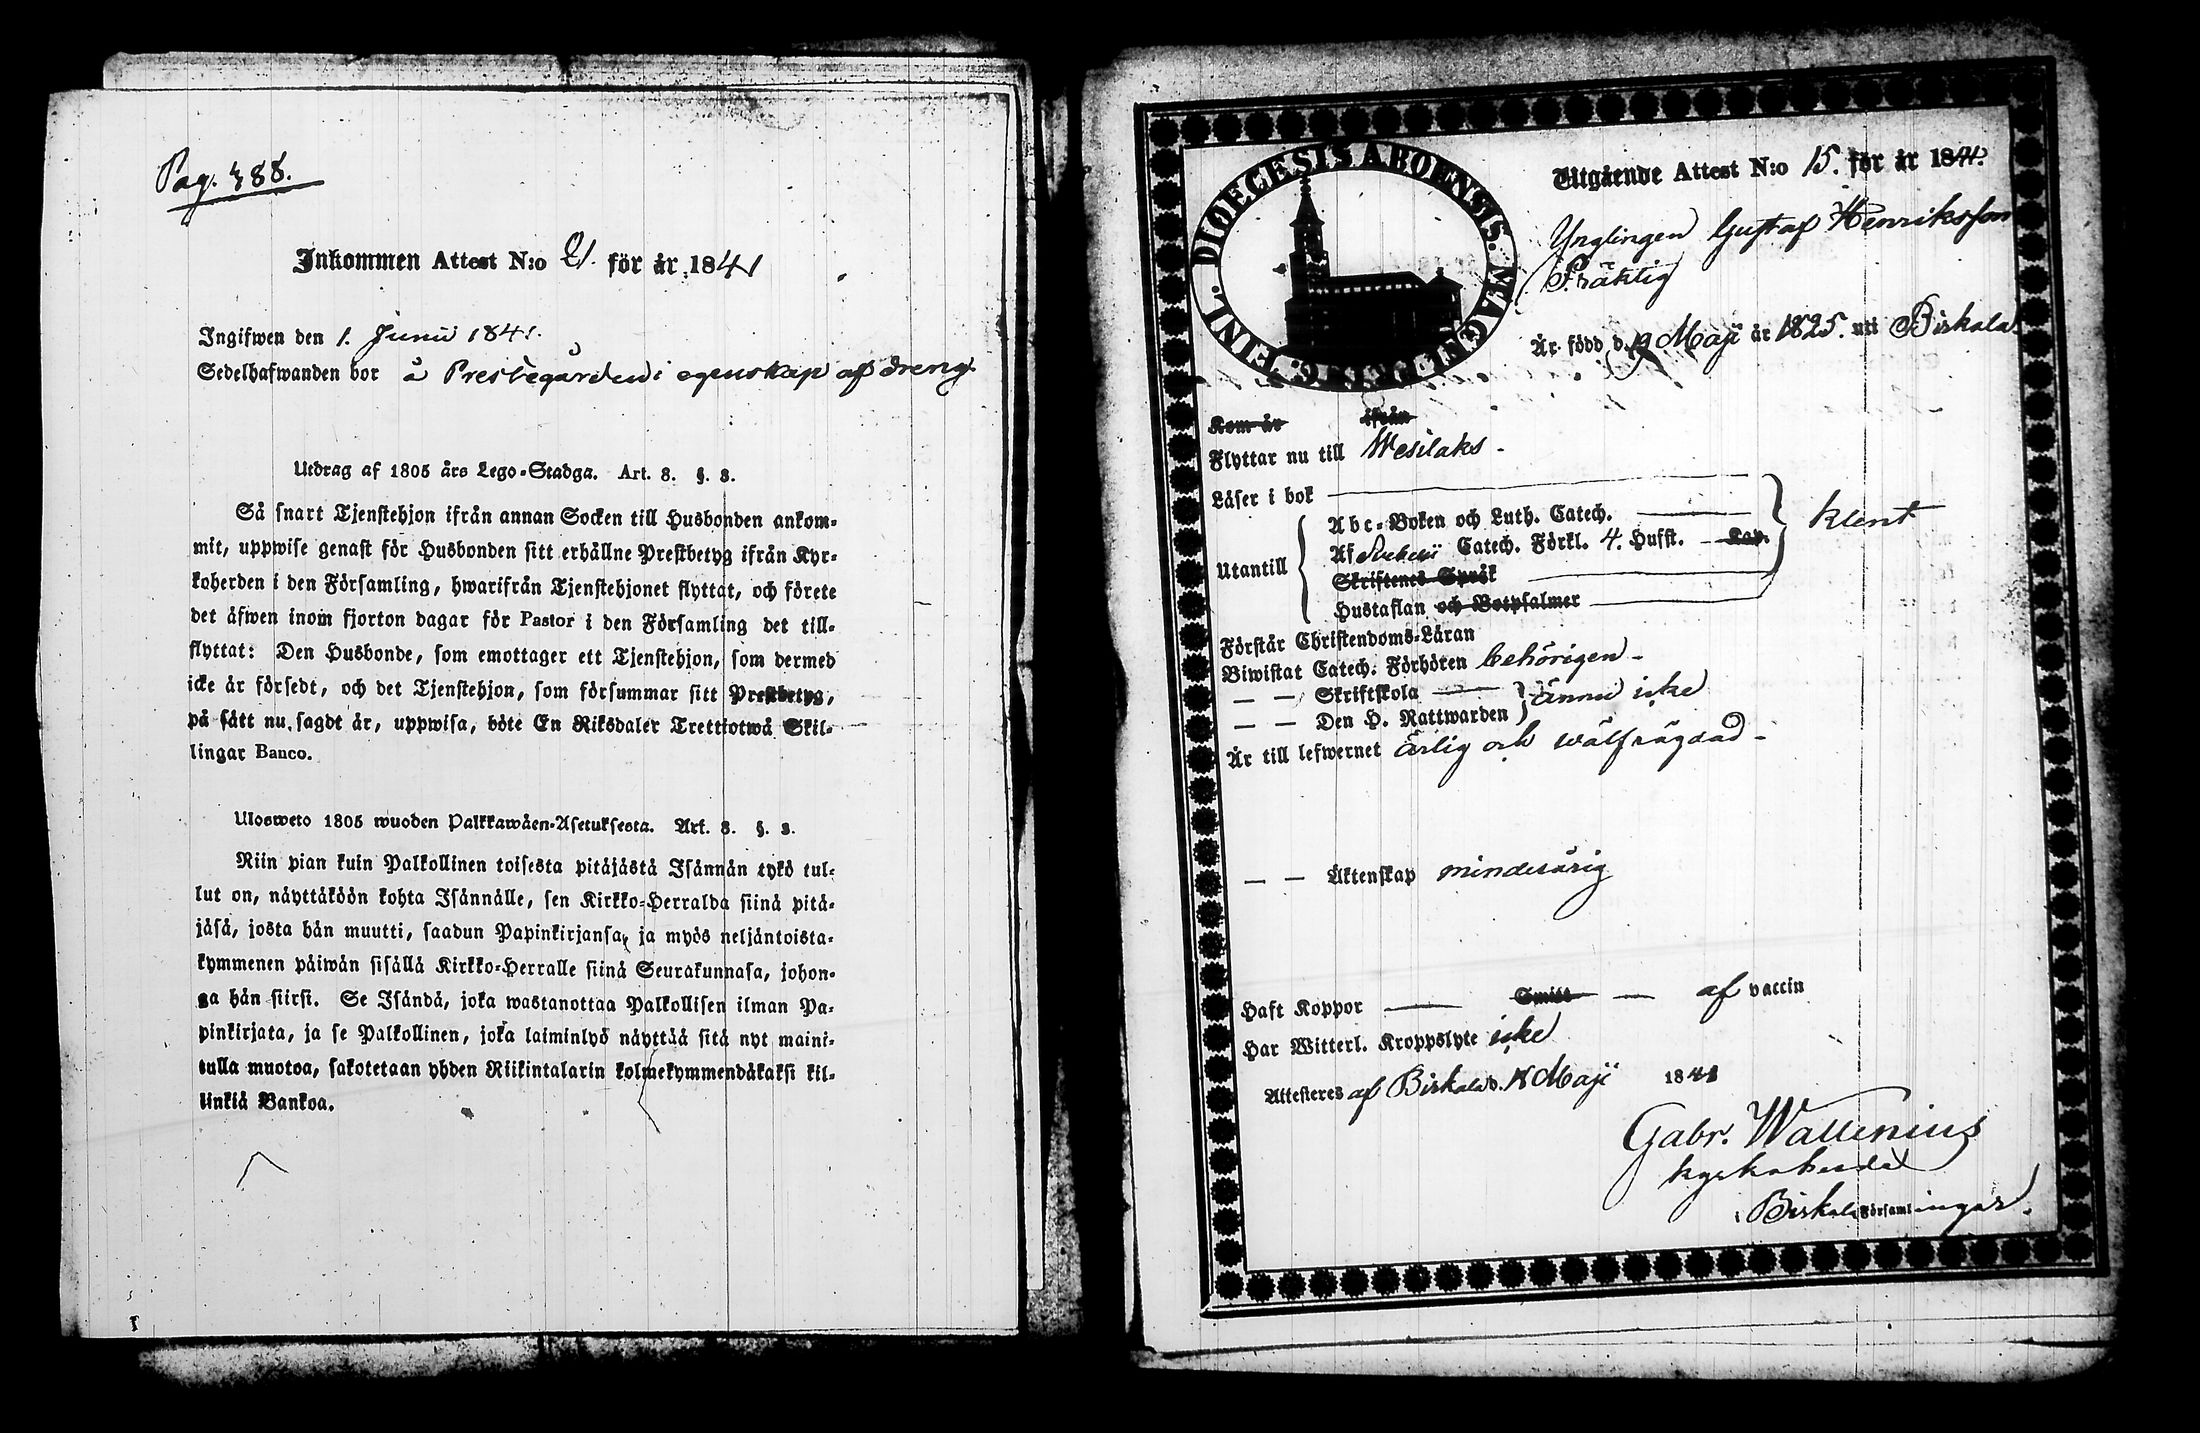 Pag. 488.
Inkommen Attest N:o 21. för år 1841
Ingifwen den 1. Junii 1841.
Sedelhafwanden bor å Prestegården i egenskap af dreng
Utdrag af 1805 års Lego-Stadga. Art. 8. §. 3.
Så snart Tjenstehjon ifrån annan Socken till Husbonden ankom-
mit, uppwise genast för Husbonden sitt erhållne Prestbetyg ifrån Kyr-
koherden i den Församling, hwarifrån Tjenstehjonet flyttat, och förete
det äfwen inom fjorton dagar för Pastor i den Församling det till-
flyttat: Den Husbonde, som emottager ett Tjenstehjon, som dermed
icke är försedt, och det Tjenstehjon, som försummar sitt Prestbetyg,
på sätt nu sagdt är, uppwisa, böte En Riksdaler Trettiotwå Skil-
lingar Banco.
Ulosweto 1805 wuoden Palkkawäen-Asetuksesta. Art. 8. §. 3.
Niin pian kuin Palkollinen toisesta pitäjästä Isännän tykö tul-
lut on, näyttäköön kohta Isännälle, sen Kirkko-Herralda siinä pitä-
jäsä, josta hän muutti, saadun Papinkirjansa, ja myös neljäntoista-
kymmenen päiwän sisällä Kirkko-Herralle siinä Seurakunnasa, johon-
ga hän siirsi. Se Isändä, joka wastanottaa Palkollisen ilman Pa-
pinkirjata, ja se Palkollinen, joka laiminlyö näyttää sitä nyt maini-
tulla muotoa, sakotetaan yhden Riikintalarin kolmekymmendäkaksi kil-
linkiä Bankoa.
DIOECESIS ABOENSIS. MAGNI DUC: FINL.
Utgående Attest N:o 15. för år 1841.
Ynglingen Gustaf Henriksson
Präktig
Är född d. 19 Maji år 1825. uti Birkala
Kom år ifrån
Flyttar nu till Wesilaks.
Läser i bok
Utantill
Abc-Boken och Luth. Catech.
Af Svebelii Catech. Förkl. 4. Hufst. Kap.
Skriftenes Språk
Hustaflan och Botpsalmer
klent
Förstår Christendoms-Läran
Biwistat Catech. Förhören behörigen
— — Skriftskola
— — Den H. Nattwarden
ännu icke
Är till lefwernet ärlig och wälfrägdad
— — Äktenskap minderårig
Haft Koppor — Smitt — af vaccin
Har Witterl. Kroppslyte icke
Attesteres af Birkala d. 18 Maji 1841
Gabr. Wallenius
kyrkoherde
i Birkala Församlingar.